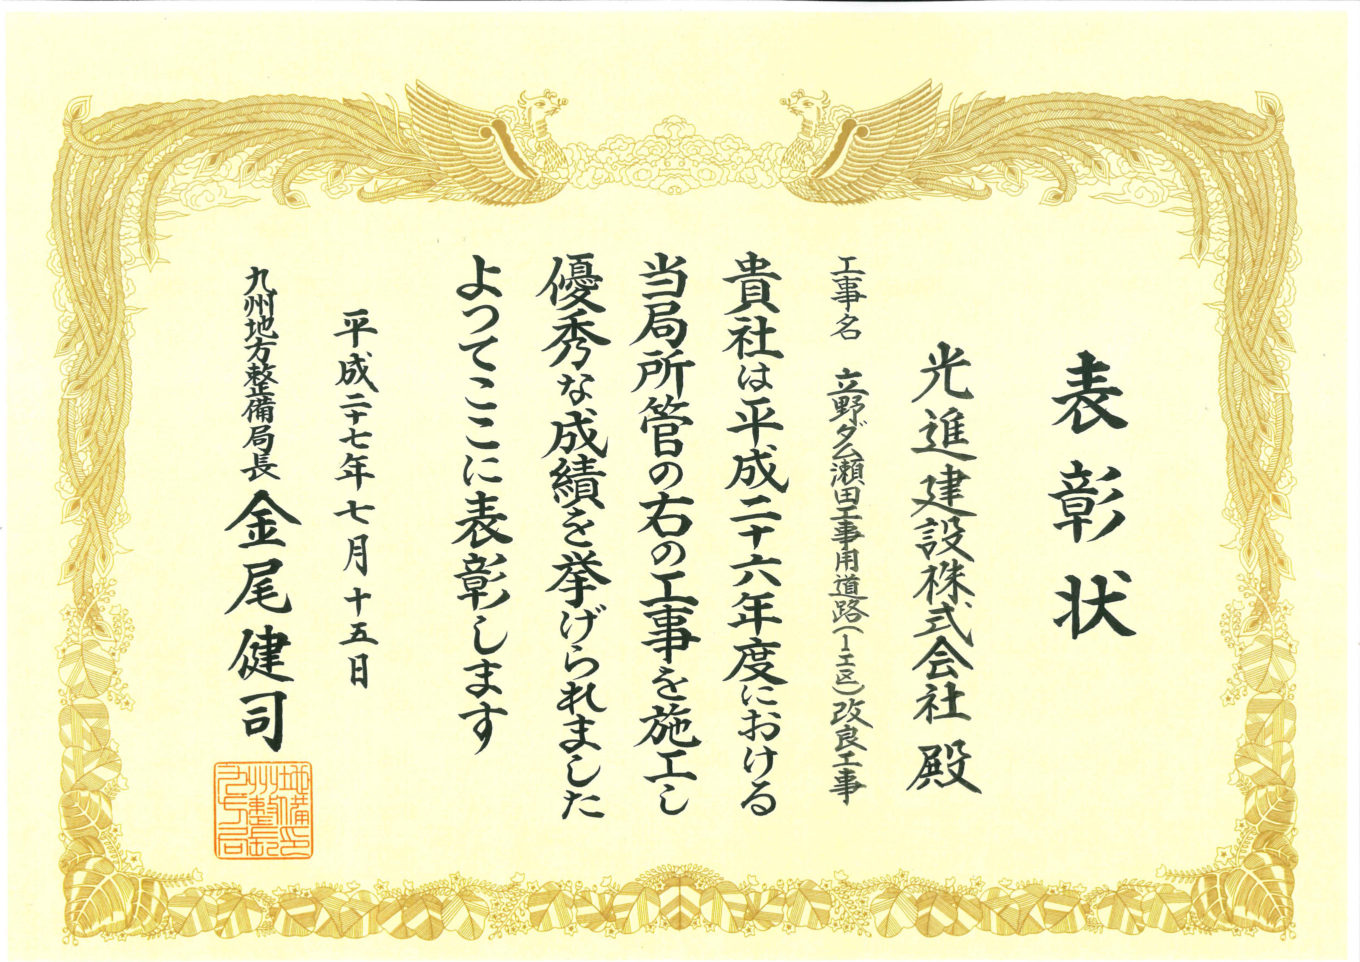 表彰状
光進建設株式会社 殿
工事名 立野ダム瀬田工事用道路(1工区)改良工事
貴社は平成二十六年度における
当局所管の右の工事を施工し
優秀な成績を挙げられました
よつてここに表彰します
平成二十七年七月十五日
九州地方整備局長 金尾健司